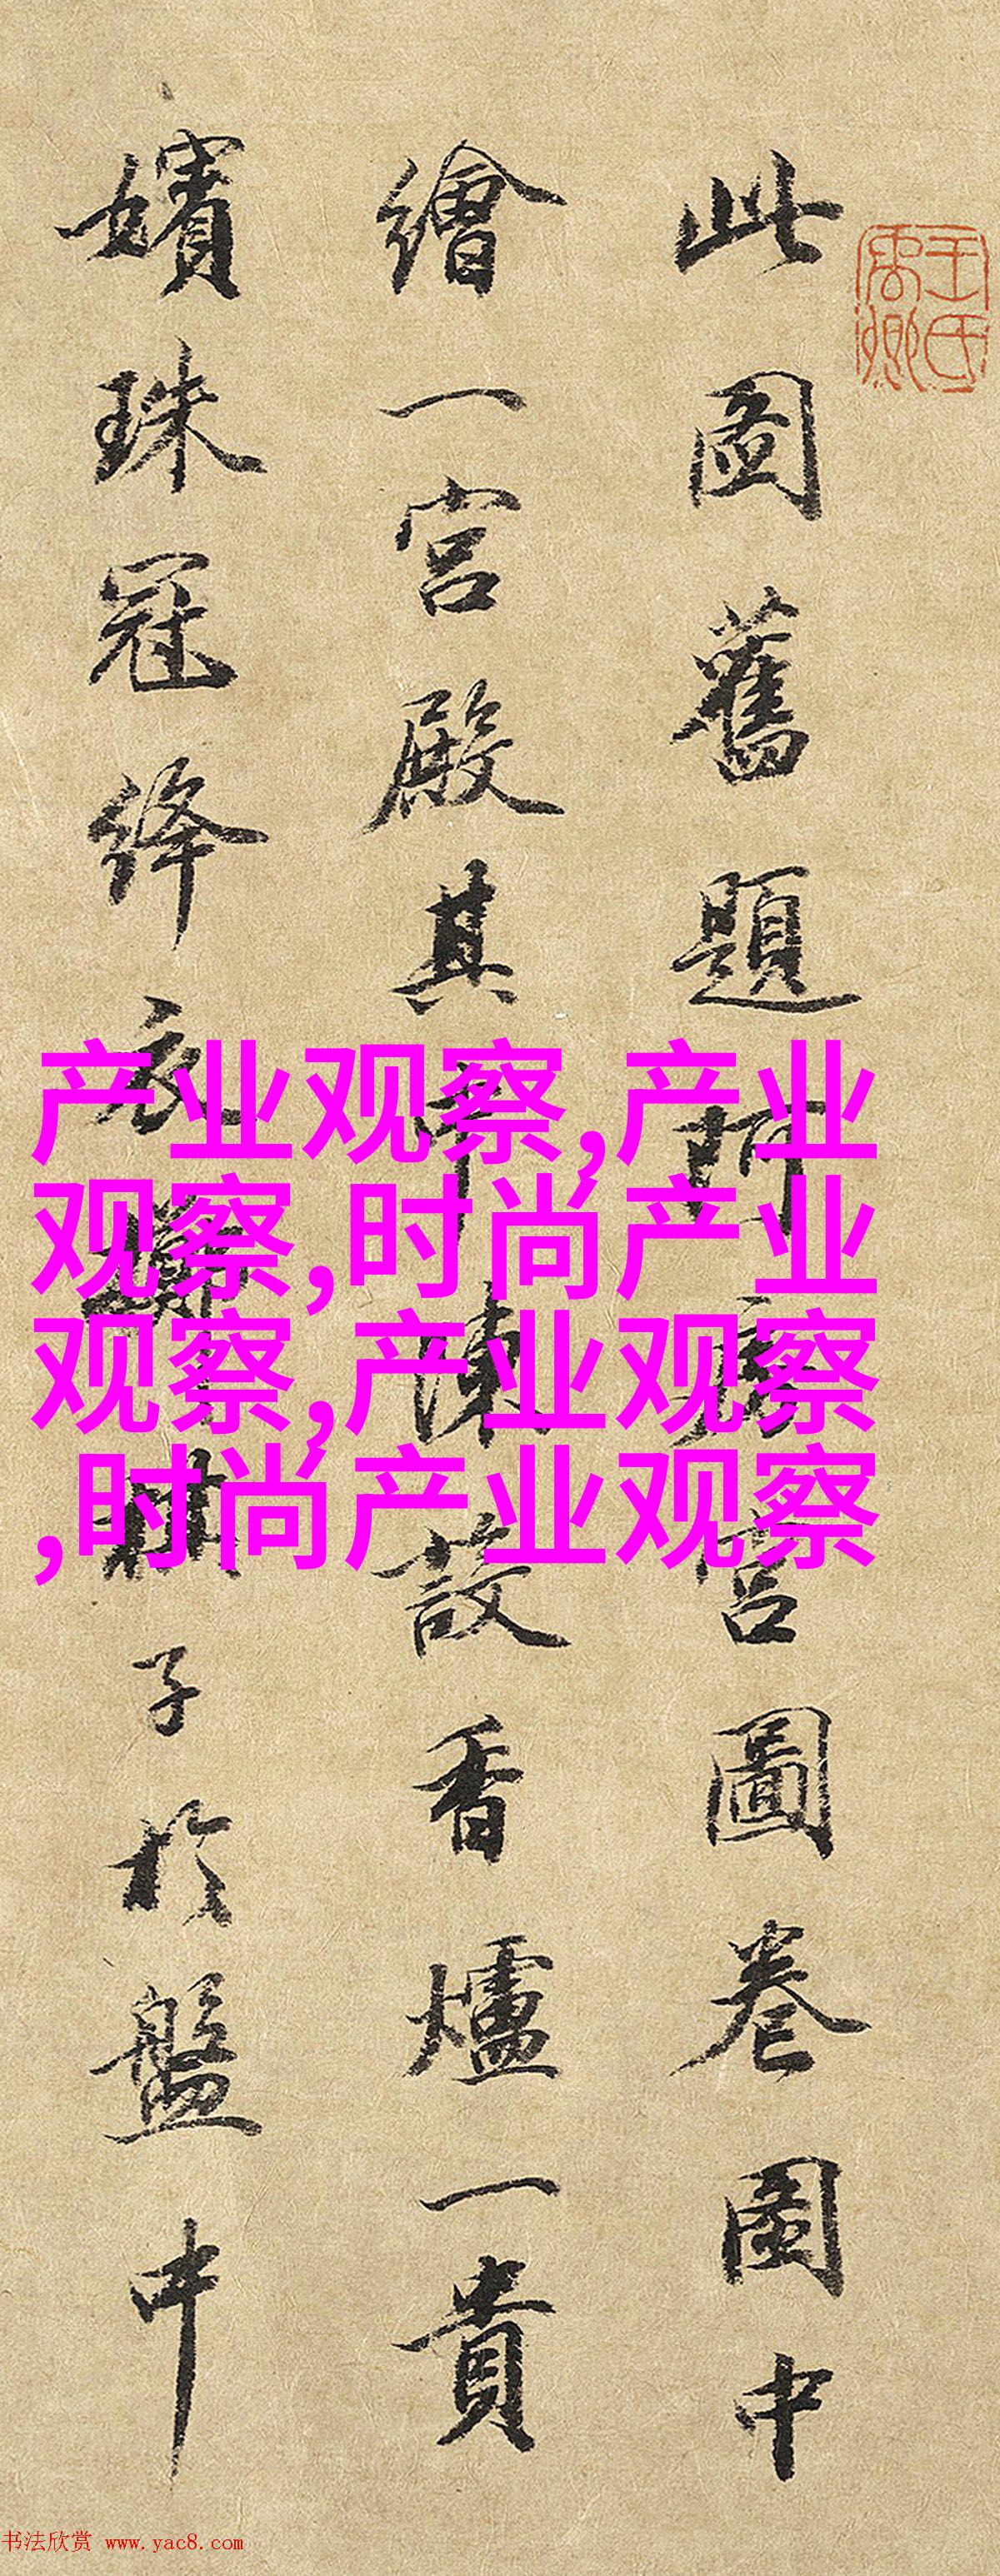 此圖舊題阿房宮圖卷圖中
繪一宮殿其中陳設香爐一貴
嬪珠冠絳衣子於盤中
王氏禹卿
产业观察,产业
观察,时尚产业
观察,产业观察
,时尚产业观察
书法欣赏 www.yac8.com